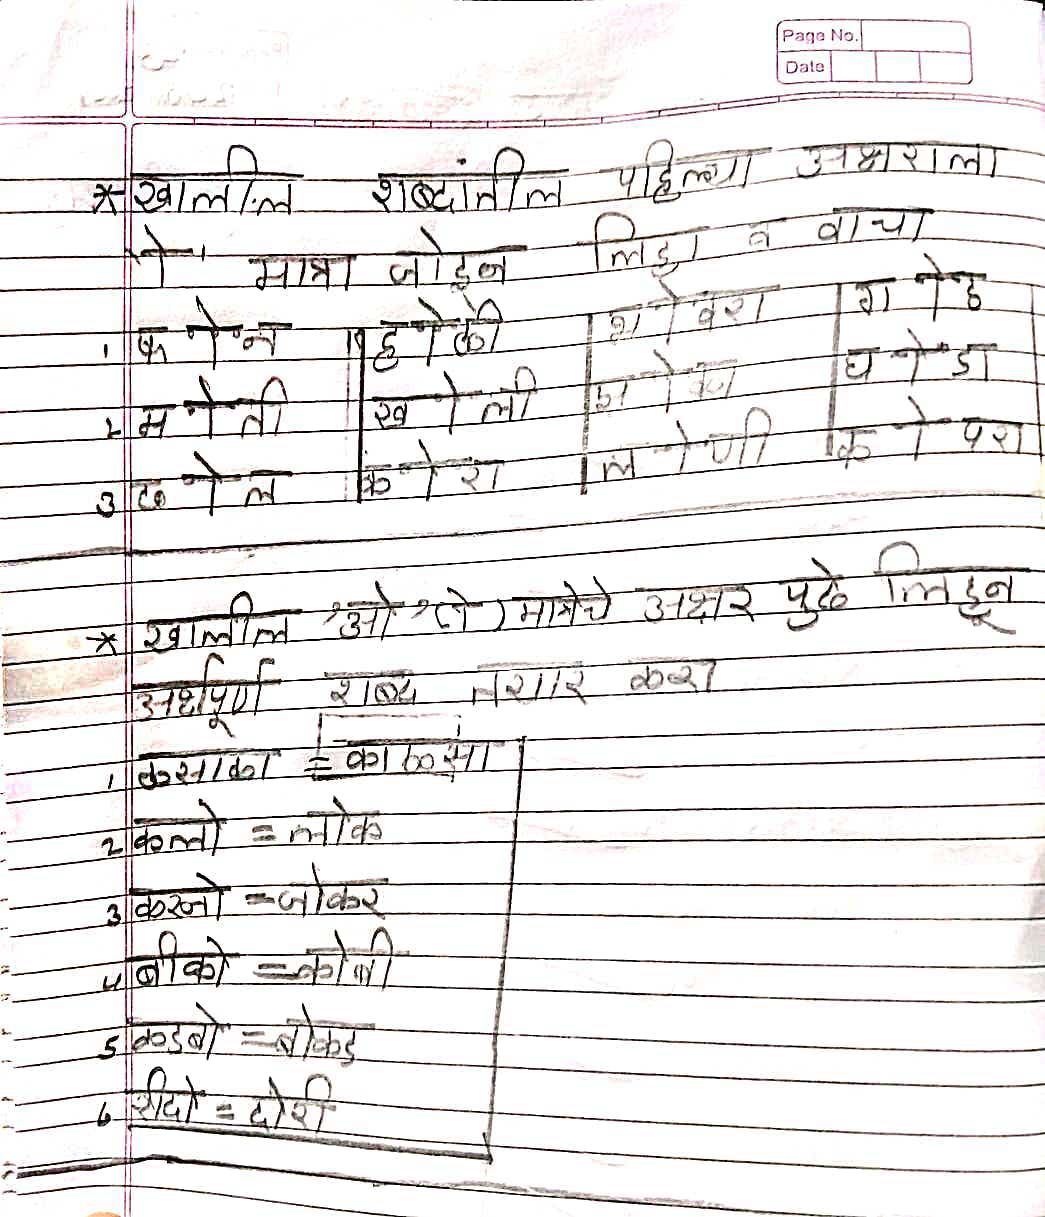 Page No.
Date
* खालील शब्दांतील पहिल्या अक्षराला
'ो' मात्रा जोडून लिहा व वाचा
1 फ ो न ह ो की श ो वरा ग ो ड
2 म ो ती ख ो ली श ो क घ ो डा
3 ढ ो ल क ो रा ल ो णी क ो परा
* खालील 'ओ' (ो) मात्रेचे अक्षर पुढे लिहून
अर्थपूर्ण शब्द तयार करा
1
2 कलो = लोक
3 करजो = जोकर
4 बीको = कोबी
5 कडबो = बोकड
6 रीदो = दोरी